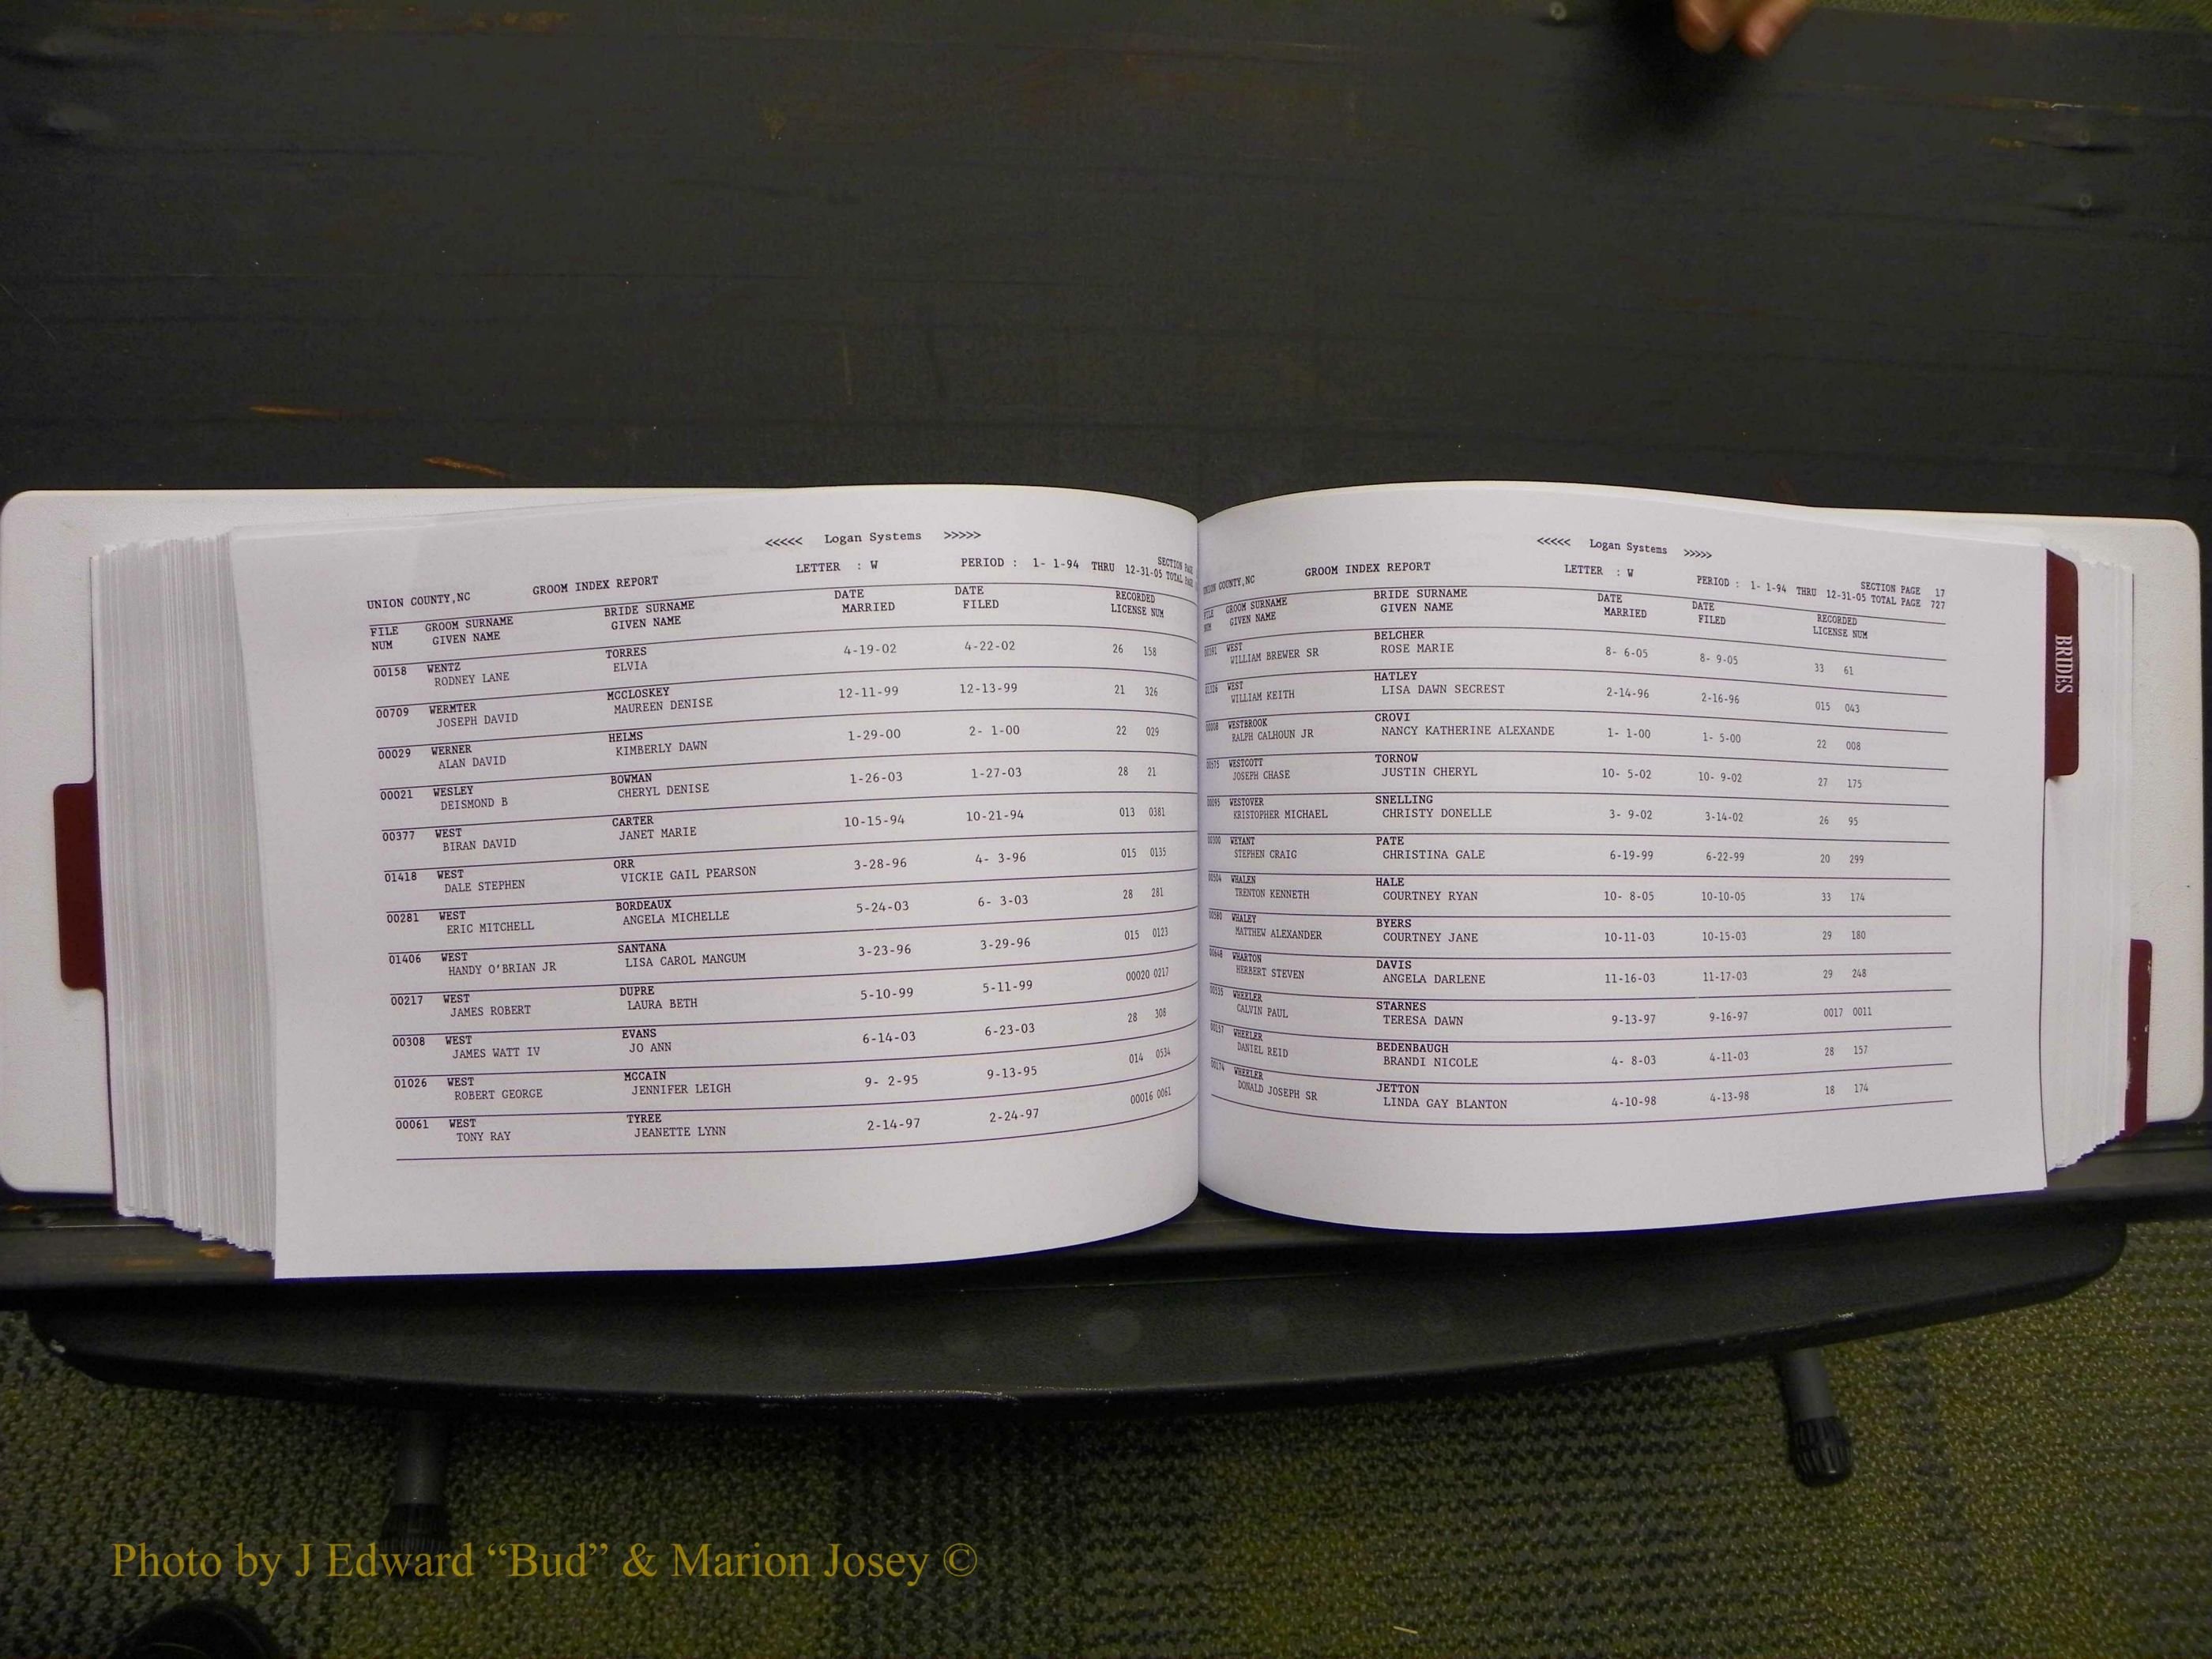 <<<<< Logan Systems >>>>>
UNION COUNTY,NC GROOM INDEX REPORT LETTER : W PERIOD : 1- 1-94 THRU 12-31-05 SECTION PAGE
TOTAL PAGE
FILE GROOM SURNAME BRIDE SURNAME DATE DATE RECORDED
NUM GIVEN NAME GIVEN NAME MARRIED FILED LICENSE NUM
00158 WENTZ TORRES 4-19-02 4-22-02 26 158
RODNEY LANE ELVIA
00709 WERMTER MCCLOSKEY 12-11-99 12-13-99 21 326
JOSEPH DAVID MAUREEN DENISE
00029 WERNER HELMS 1-29-00 2- 1-00 22 029
ALAN DAVID KIMBERLY DAWN
00021 WESLEY BOWMAN 1-26-03 1-27-03 28 21
DEISMOND B CHERYL DENISE
00377 WEST CARTER 10-15-94 10-21-94 013 0381
BIRAN DAVID JANET MARIE
01418 WEST ORR 3-28-96 4- 3-96 015 0135
DALE STEPHEN VICKIE GAIL PEARSON
00281 WEST BORDEAUX 5-24-03 6- 3-03 28 281
ERIC MITCHELL ANGELA MICHELLE
01406 WEST SANTANA 3-23-96 3-29-96 015 0123
HANDY O'BRIAN JR LISA CAROL MANGUM
00217 WEST DUPRE 5-10-99 5-11-99 00020 0217
JAMES ROBERT LAURA BETH
00308 WEST EVANS 6-14-03 6-23-03 28 308
JAMES WATT IV JO ANN
01026 WEST MCCAIN 9- 2-95 9-13-95 014 0534
ROBERT GEORGE JENNIFER LEIGH
00061 WEST TYREE 2-14-97 2-24-97 00016 0061
TONY RAY JEANETTE LYNN
<<<<< Logan Systems >>>>>
UNION COUNTY,NC GROOM INDEX REPORT LETTER : W PERIOD : 1- 1-94 THRU 12-31-05 SECTION PAGE 17
TOTAL PAGE 727
FILE GROOM SURNAME BRIDE SURNAME DATE DATE RECORDED
NUM GIVEN NAME GIVEN NAME MARRIED FILED LICENSE NUM
WEST BELCHER 8- 6-05 8- 9-05 33 61
WILLIAM BREWER SR ROSE MARIE
WEST HATLEY 2-14-96 2-16-96 015 043
WILLIAM KEITH LISA DAWN SECREST
00008 WESTBROOK CROVI 1- 1-00 1- 5-00 22 008
RALPH CALHOUN JR NANCY KATHERINE ALEXANDE
00575 WESTCOTT TORNOW 10- 5-02 10- 9-02 27 175
JOSEPH CHASE JUSTIN CHERYL
00095 WESTOVER SNELLING 3- 9-02 3-14-02 26 95
KRISTOPHER MICHAEL CHRISTY DONELLE
00300 WEYANT PATE 6-19-99 6-22-99 20 299
STEPHEN CRAIG CHRISTINA GALE
00504 WHALEN HALE 10- 8-05 10-10-05 33 174
TRENTON KENNETH COURTNEY RYAN
00580 WHALEY BYERS 10-11-03 10-15-03 29 180
MATTHEW ALEXANDER COURTNEY JANE
00648 WHARTON DAVIS 11-16-03 11-17-03 29 248
HERBERT STEVEN ANGELA DARLENE
00535 WHEELER STARNES 9-13-97 9-16-97 0017 0011
CALVIN PAUL TERESA DAWN
00157 WHEELER BEDENBAUGH 4- 8-03 4-11-03 28 157
DANIEL REID BRANDI NICOLE
00174 WHEELER JETTON 4-10-98 4-13-98 18 174
DONALD JOSEPH SR LINDA GAY BLANTON
BRIDES
Photo by J Edward “Bud” & Marion Josey ©